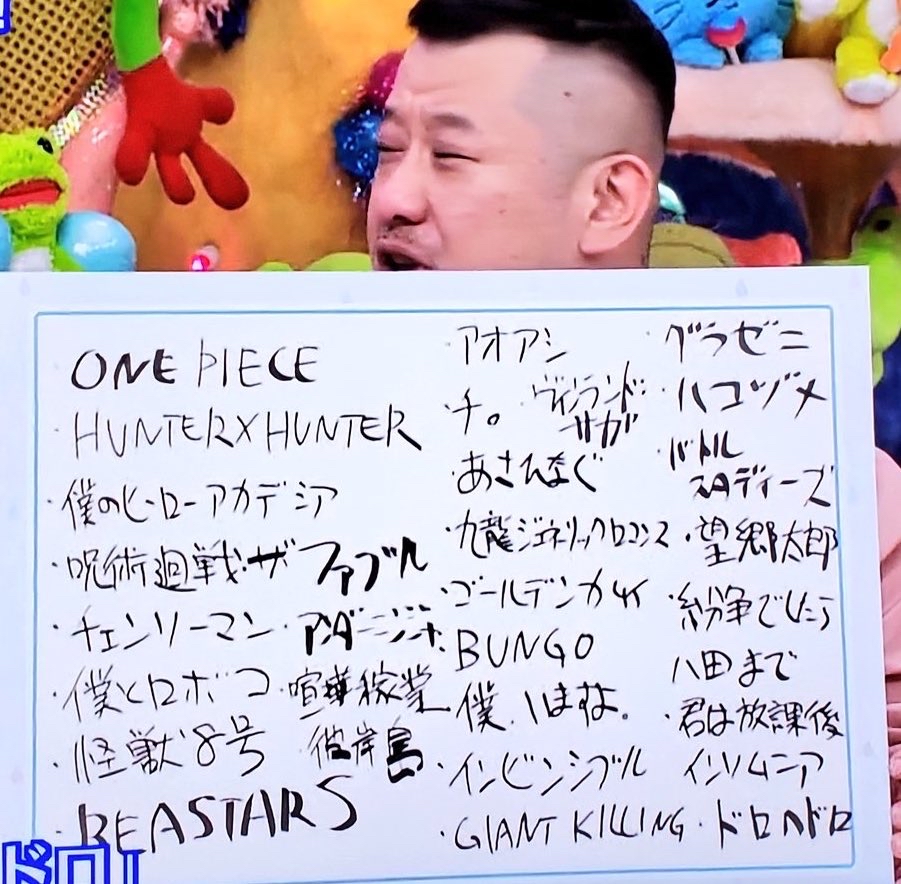 ONE PIECE
・HUNTER×HUNTER
・僕のヒーローアカデミア
・呪術廻戦・ザ ファブル
・チェンソーマン
・僕とロボコ・喧嘩稼業
・怪獣8号 彼岸島
・BEASTARS
・アオアシ
・チ。・ヴィンランド・サガ
・あさひなぐ
・九龍ジェネリックロマンス
・ゴールデンカムイ
・BUNGO
・僕
・インビンシブル
・GIANT KILLING
・グラゼニ
・ハコヅメ
・バトル
スタディーズ
・望郷太郎
・紛争でしたら
八田まで
・君は放課後
インソムニア
・ドロヘドロ
ドロ